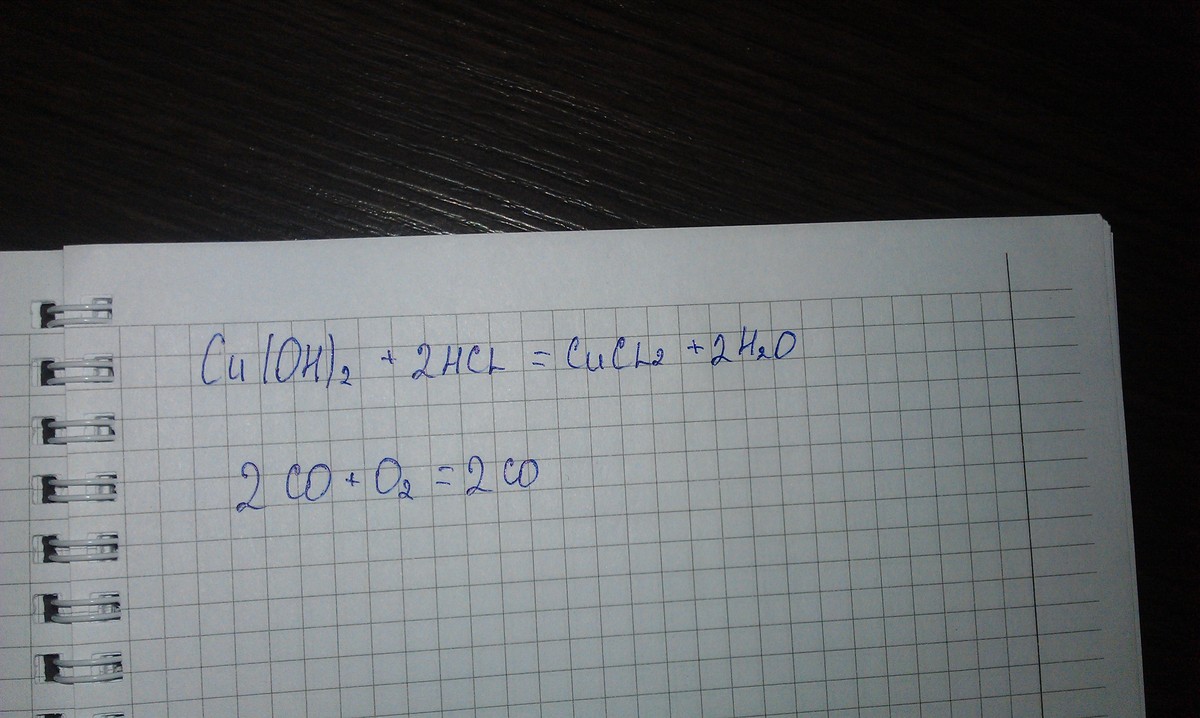 Cu(OH)₂ + 2HCl = CuCl₂ + 2H₂O
2CO + O₂ = 2CO